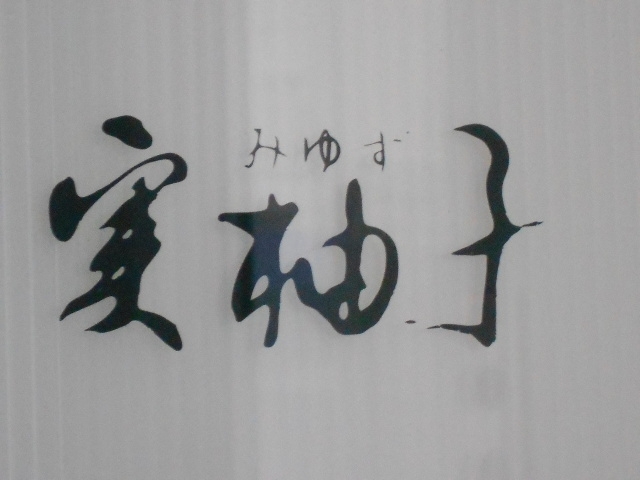 みゆず
実柚子